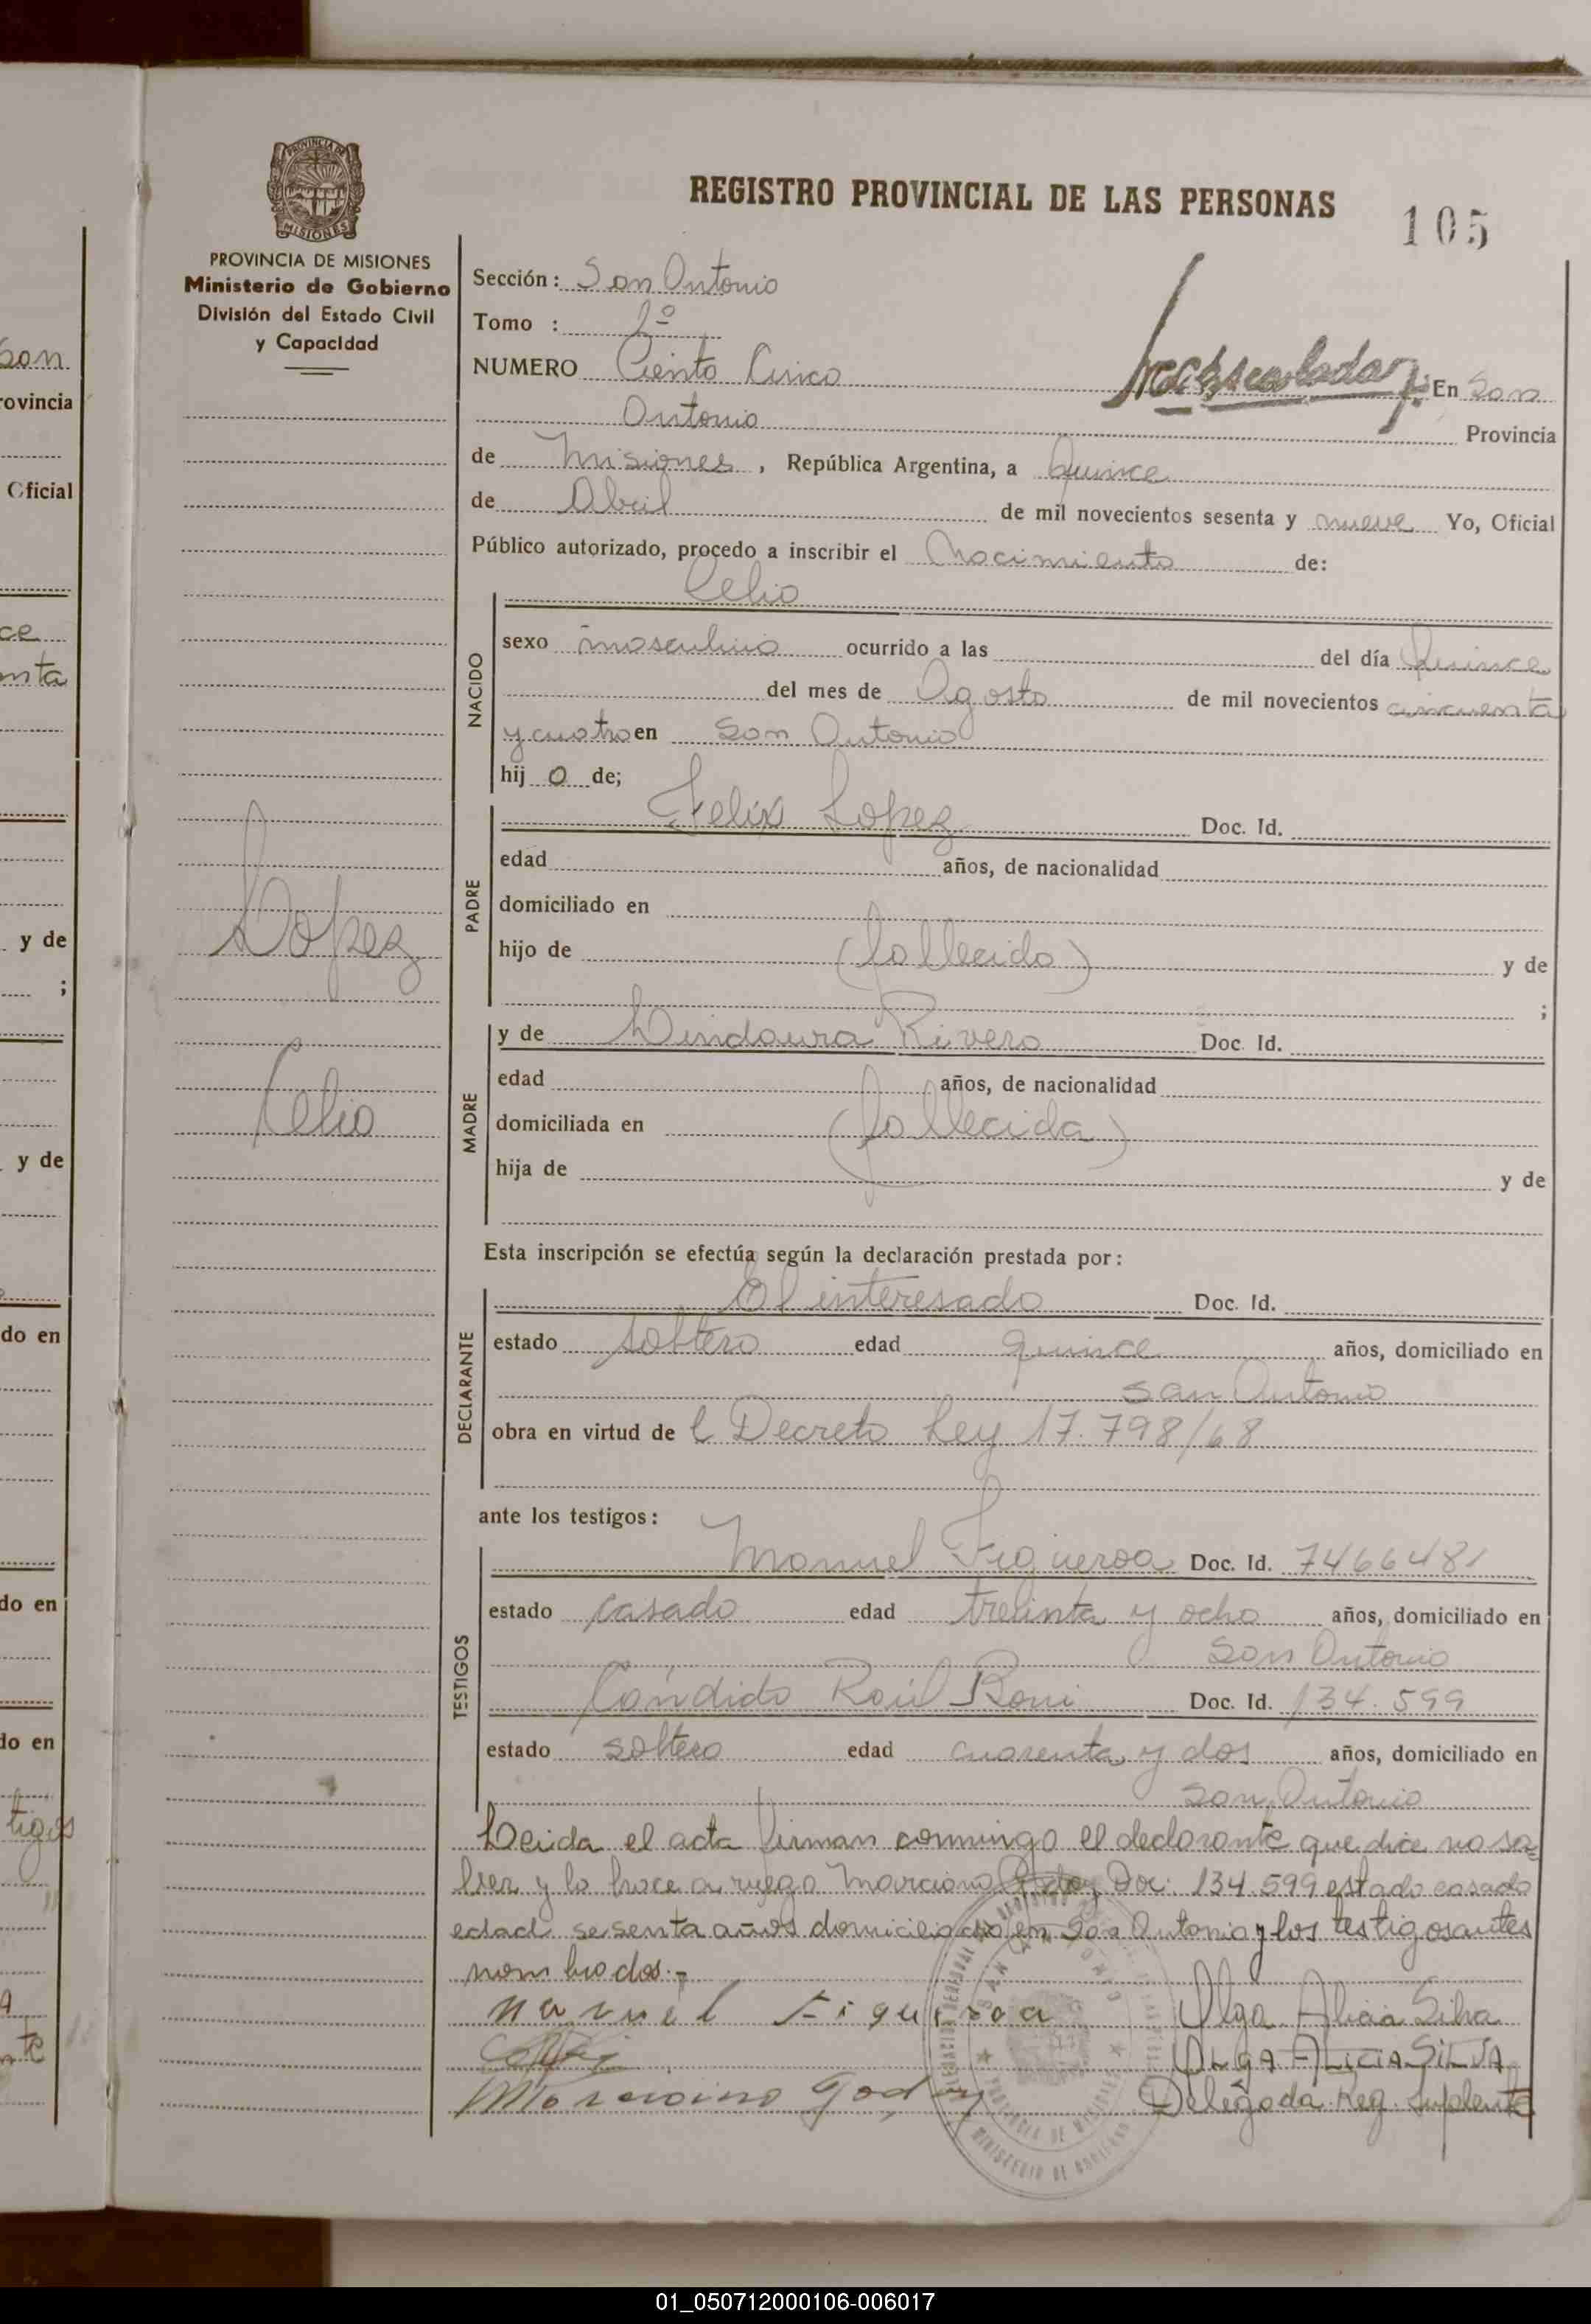 son
rovincia
Oficial
ce
nta
y de
;
y de
do en
do en
do en
tigos
PROVINCIA DE
MISIONES
PROVINCIA DE MISIONES
Ministerio de Gobierno
División del Estado Civil
y Capacidad
Lopez
Celio
REGISTRO PROVINCIAL DE LAS PERSONAS
105
Sección: San Antonio
Tomo : 2º
NUMERO Ciento Cinco En San
Antonio Provincia
de Misiones, República Argentina, a Quince
de Abril de mil novecientos sesenta y nueve Yo, Oficial
Público autorizado, procedo a inscribir el Nacimiento de:
Celio
NACIDO
sexo masculino ocurrido a las del día Quince
del mes de Agosto de mil novecientos cincuenta
y cuatro en San Antonio
hij o de;
Felix Lopez Doc. Id.
PADRE
edad años, de nacionalidad
domiciliado en
hijo de (fallecido) y de
;
MADRE
y de Lindaura Rivero Doc. Id.
edad años, de nacionalidad
domiciliada en (fallecida)
hija de y de
Esta inscripción se efectúa según la declaración prestada por:
DECLARANTE
El interesado Doc. Id.
estado soltero edad quince años, domiciliado en
San Antonio
obra en virtud de l Decreto Ley 17.798/68
ante los testigos:
TESTIGOS
Manuel Figueroa Doc. Id. 7466481
estado casado edad treinta y ocho años, domiciliado en
San Antonio
Cándido Raúl Doc. Id. 134.599
estado soltero edad cuarenta y dos años, domiciliado en
San Antonio
Leida el acta firman conmingo el declarante que dice no sa=
ber y lo hace a ruego Marciano Godoy Doc: 134.599 estado casado
edad sesenta años domiciliado en San Antonio y los testigos antes
nombrados.-
Manuel Figueroa Olga Alicia Silva
OLGA ALICIA SILVA
Marciano Godoy Delegada Reg. Suplente
SAN ANTONIO
PROVINCIA DE MISIONES
MINISTERIO DE GOBIERNO
01_050712000106-006017